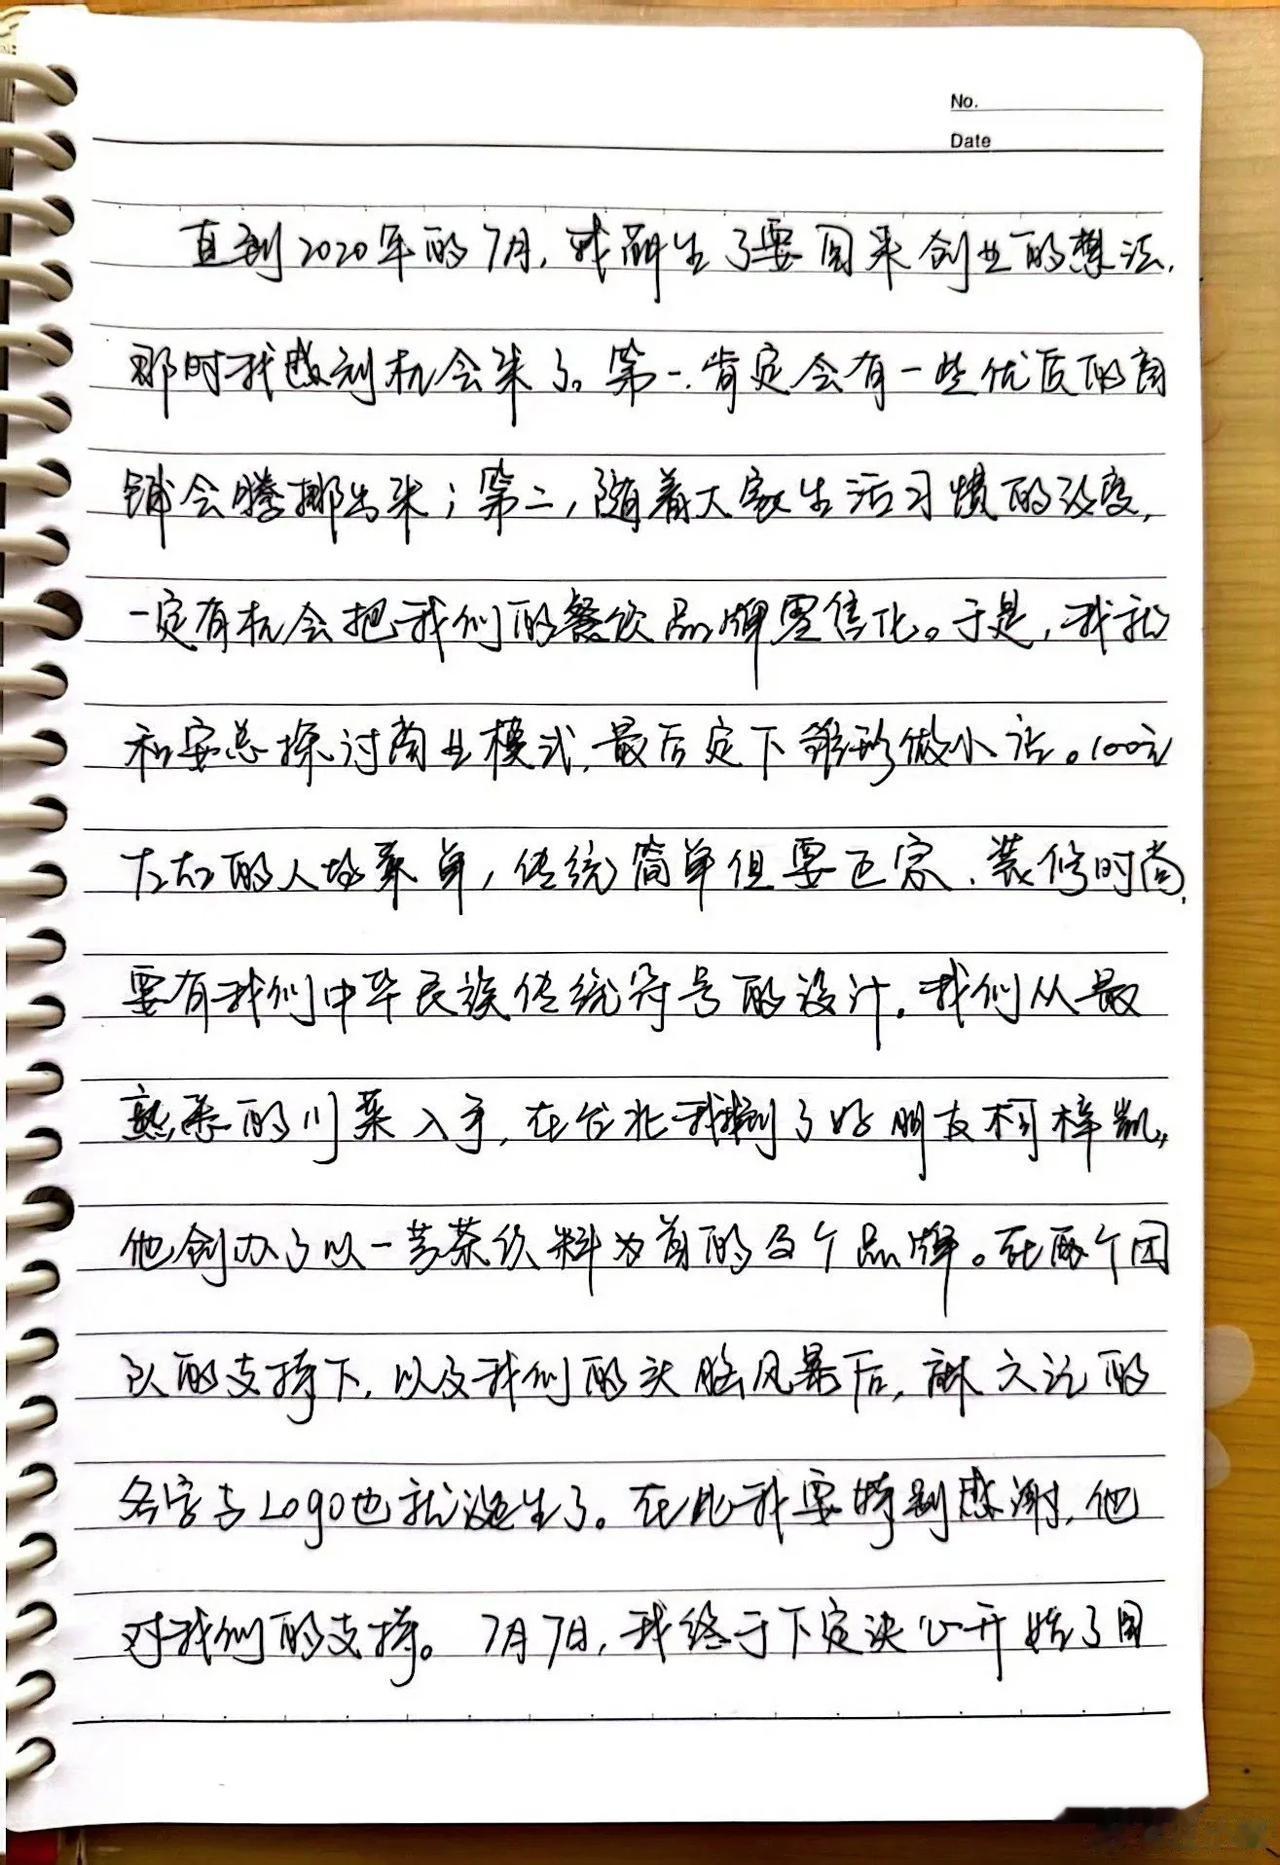 No.
Date
直到2020年的7月,我萌生了要回来创业的想法,
那时我感到机会来了。第一.肯定会有一些优质的商
铺会腾挪出来;第二,随着大家生活习惯的改变,
一定有机会把我们的餐饮品牌零售化。于是,我就
和安总探讨商业模式,最后定下雏形做小店。100元
左右的人均菜单,传统简单但要回家、装修时尚,
要有我们中华民族传统符号的设计。我们从最
熟悉的川菜入手,在台北我找到了好朋友柯梓凯,
他创办了以一芳茶饮料为首的及个品牌。在两个团
队的支持下,以及我们的头脑风暴后,麻六记的
名字与Logo也就诞生了。在此我要特别感谢,他
对我们的支持。7月7日,我终于下定决心开始了回